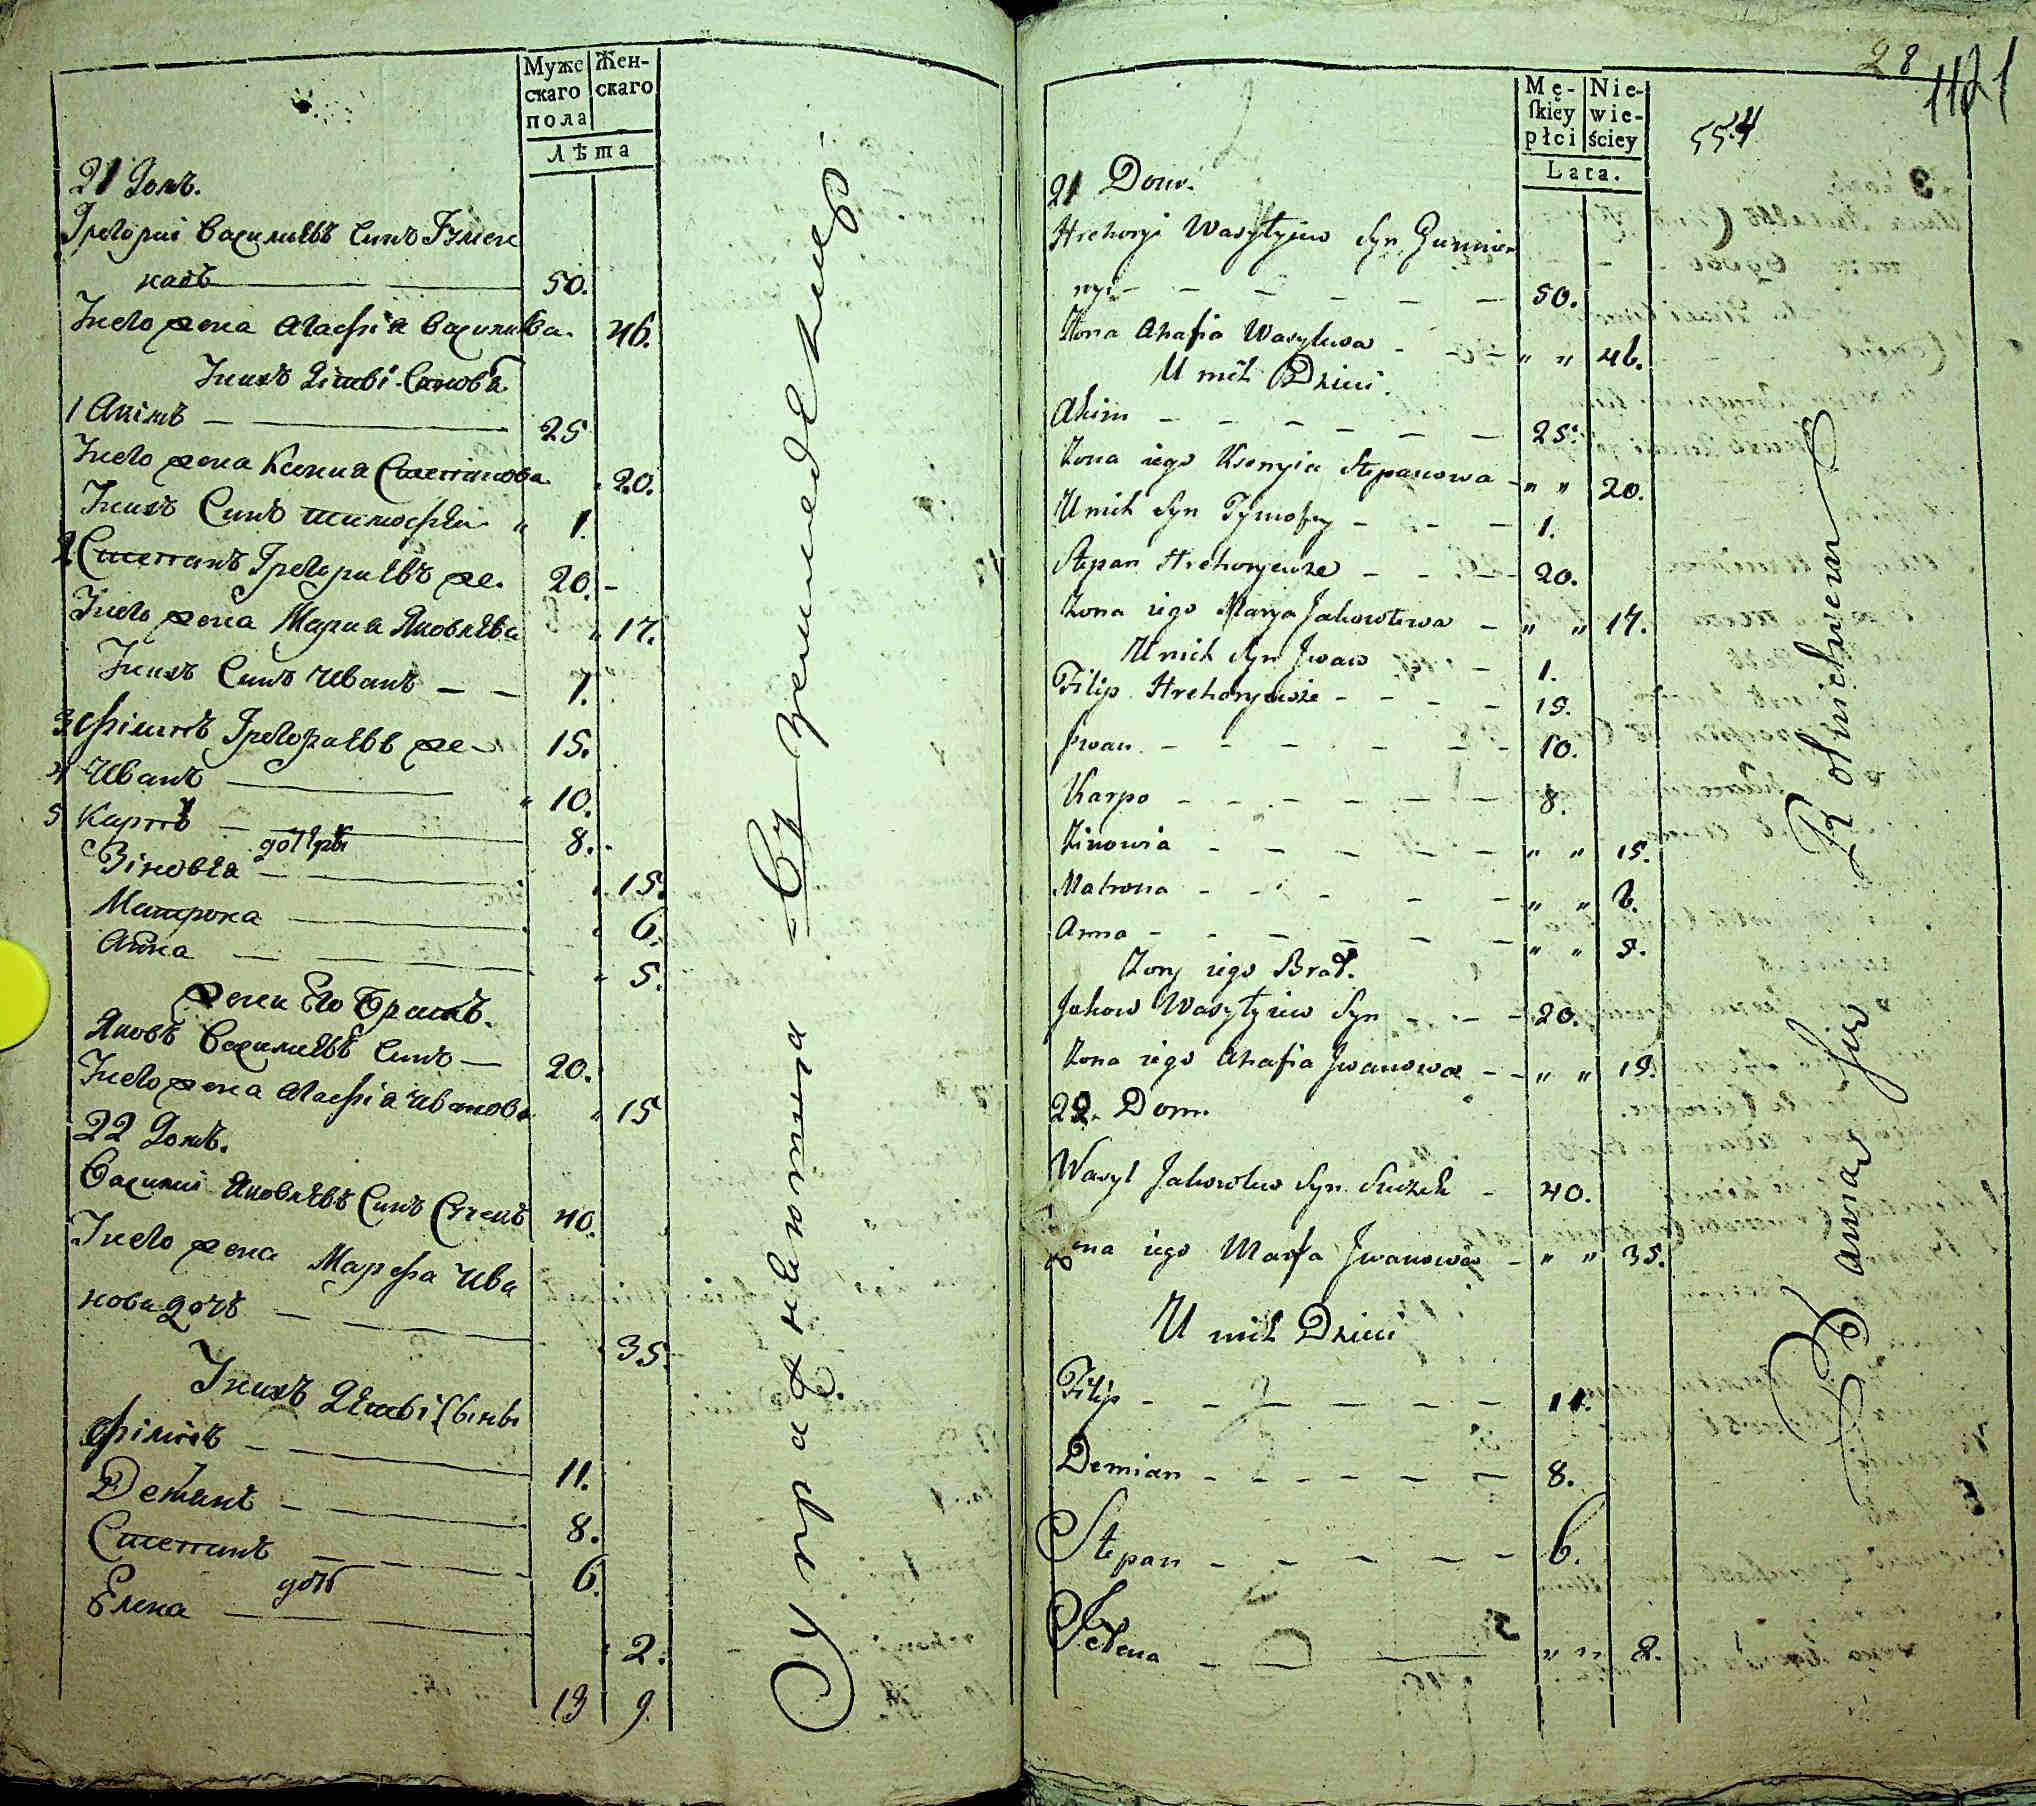 Муже
скаго
пола
Жен-
скаго
Лѣта
21 Домъ.
Грегорий Василиевъ Синъ Гумен
ной 50.
Унего жена Агафия Василиева 46.
Унихъ Дѣти Синовя
1 Акимъ 25
Унего жена Ксения Степанова 20.
Унихъ Синъ Тимофѣй 1.
2 Степанъ Грегориевъ же. 20.
Унего жена Мария Яковлѣва 17.
Унихъ Синъ Иванъ 1.
3 Филипъ Грегориевъ же 15.
4 Иванъ 10.
5 Карпъ 8.
дочери
Зиновѣя 15.
Матрона 6.
Анна 5.
Жени Его Братъ.
Яковъ Василиевъ Синъ 20.
Унего жена Агафия Иванова 15
22 Домъ.
Василий Яковлѣвъ Синъ 40.
Унего жена Марфа Ива
нова дочь 35.
Унихъ Дѣти Сыны
Филипъ 11.
Демянъ 8.
Степанъ 6.
дочь
Елена 2.
13 9.
Упражнѣнются Вземледелие
28
1121
554
Mę-
ſkiey
płci
Nie-
wie-
ściey
Lata.
21 Dom.
Hrehoryi Wasylyiew Syn Gumien
nyi 50.
Żona Ahafia Wasylewa " " 46.
U nich Dzieci
Akim 25.
Żona iego Ksenyia Stepanowa " " 20.
U nich Syn Tymofey 1.
Stepan Hrehoryewże 20.
Żona iego Marya Jakowlewa " " 17.
U nich Syn Jwan 1.
Filip Hrehoryewże 15.
Jwan 10.
Karpo 8.
Zinowia " " 15.
Matrona " " 6.
Anna " " 5.
Żony iego Brat.
Jakow Wasylyiew Syn 20.
Żona iego Ahafia Jwanowa " " 15.
22. Dom.
Wasyl Jakowlew Syn 40.
Żona iego Marfa Jwanowa " " 35.
U nich Dzieci
Filip 11.
Demian 8.
Stepan 6.
Jelena " " 2.
Bawią się Rolnictwem